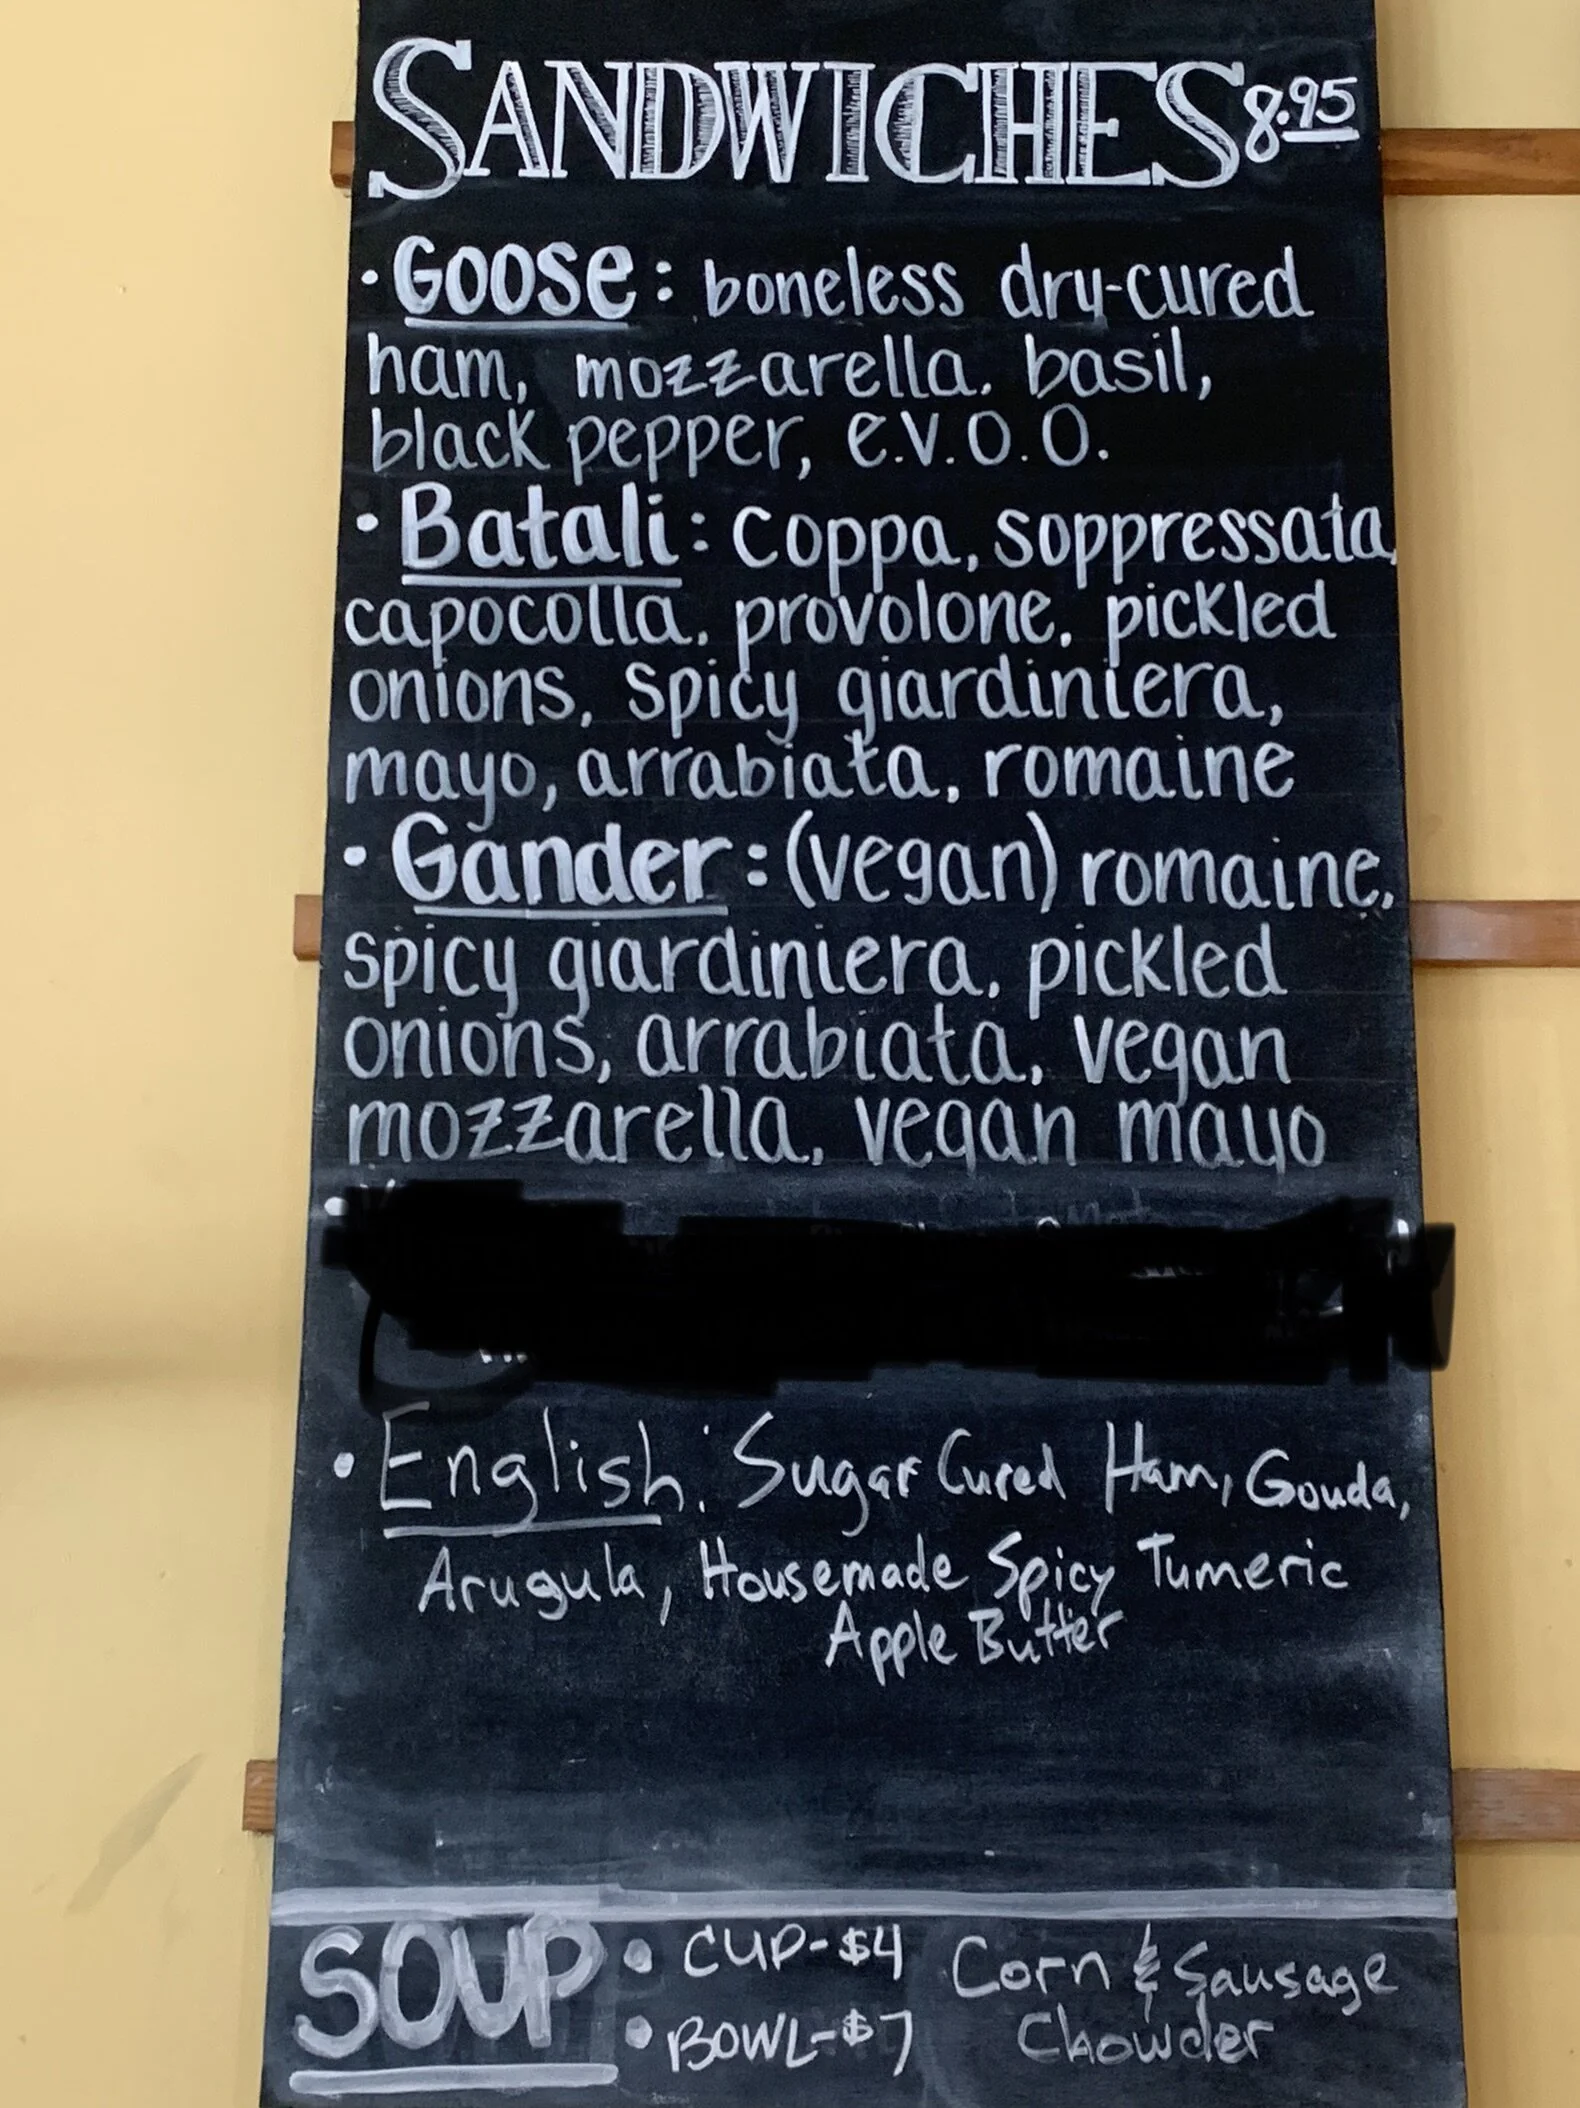 SANDWICHES 8.95
• Goose: boneless dry-cured
ham, mozzarella, basil,
black pepper, e.v.o.o.
• Batali: coppa, soppressata,
capocolla, provolone, pickled
onions, spicy giardiniera,
mayo, arrabiata, romaine
• Gander: (vegan) romaine,
spicy giardiniera, pickled
onions, arrabiata, vegan
mozzarella, vegan mayo
• English: Sugar Cured Ham, Gouda,
Arugula, Housemade Spicy Tumeric
Apple Butter
SOUP • CUP-$4 Corn & Sausage
• BOWL-$7 Chowder